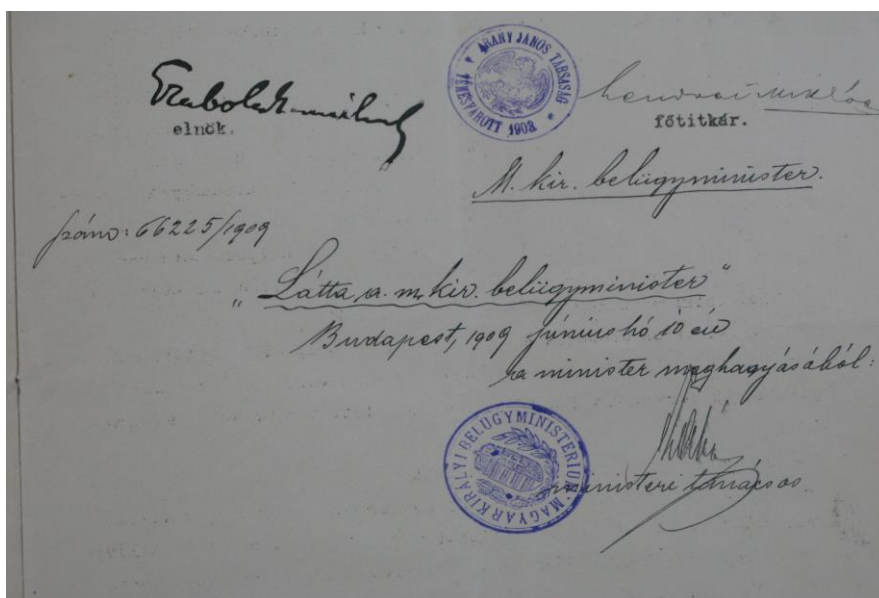 Szabolcska Mihály
elnök.
ARANY JÁNOS TÁRSASÁG
TEMESVÁROTT 1903.
Lendvai Miklós
főtitkár.
M. kir. belügyminister.
szám: 66225/1909
„Látta a m. kir. belügyminister"
Budapest, 1909 június hó 10 én
a minister meghagyásából:
MAGYAR KIRÁLYI BELÜGYMINISTERIUM
ministeri tanácsos